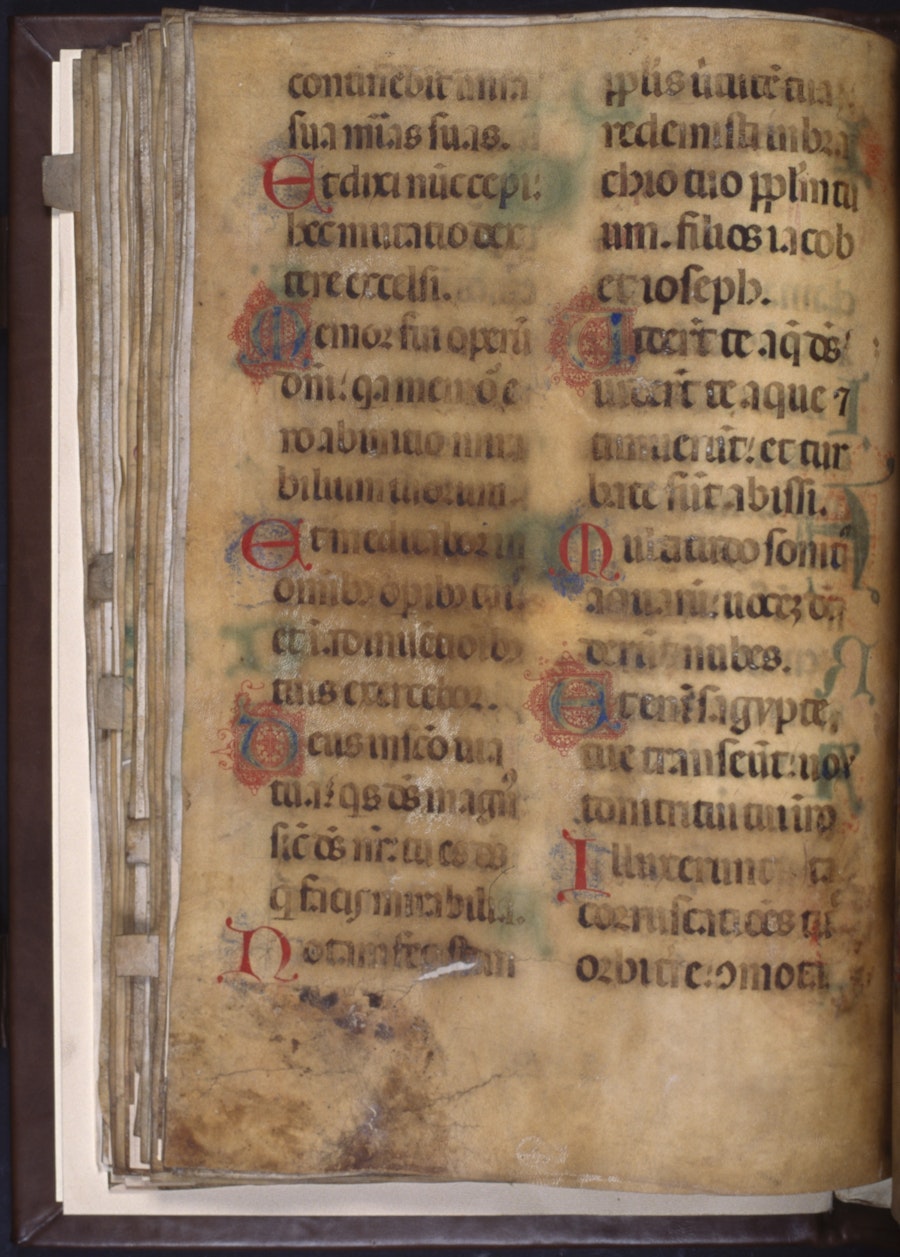 continebit in ira
sua mīas suas.
Et dixi nūc cepi:
hec mutatio dex
tere excelsi.
Memor fui operū
dn̄i: qa memoō e
ro ab initio mira
bilium tuorum.
Et meditabor in
omnibꝫ opibꝫ tuis:
et ī adinuētiōibꝫ
tuis exercebor.
Deus in scō uia
tua: qs ds magn᷒
sic̄ ds nr̄: tu es ds
q̄ facis mirabilia.
Notam fecisti in
pplis uirtutē tuā:
redemisti in bra
chio tuo pplm tu
um. filios iacob
et ioseph.
Uiderūt te aq̄ ds:
uiderūt te aque ⁊
timuerūt: et tur
bate sūt abissi.
Multitudo sonit᷒
aquarū: uocē de
derūt nubes.
Etenī sagypte
tue transeūt: uox
tonitrui tui ī ro
Illuxerunt
corruscatiōes tue
orbi tr̄e: ↄmota